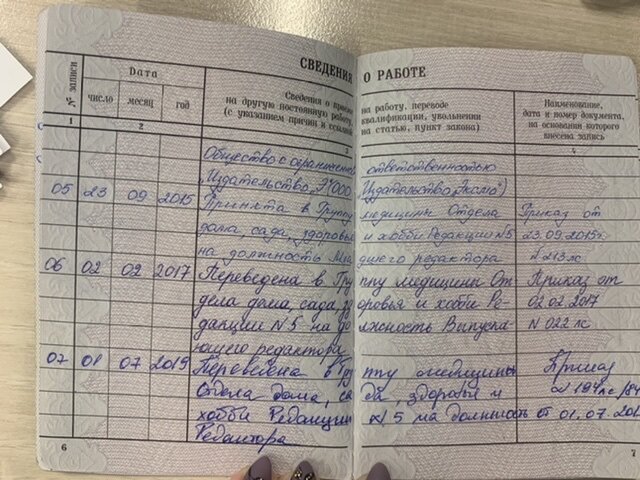 СВЕДЕНИЯ О РАБОТЕ
№ записи
Дата
число месяц год
Сведения о приеме на работу, переводе
на другую постоянную работу, квалификации, увольнении
(с указанием причин и ссылкой на статью, пункт закона)
Наименование,
дата и номер документа,
на основании которого
внесена запись
1 2 3 4
Общество с ограниченной ответственностью
„Издательство „Э" ООО Издательство
05 23 09 2015 Принята в Группу медицины Отдела Приказ от
дома, сада, здоровья и хобби Редакции №5 23.09.2015г.
на должность Младшего редактора № 213лс
06 02 02 2017 Переведена в Группу медицины От Приказ от
дела дома, сада, здоровья и хобби Ре- 02.02.2017
дакции №5 на должность Выпуска- N 022 лс
ющего редактора
07 01 07 2019 Переведена в Группу медицины Приказ
Отдела дома, сада, здоровья и
хобби Редакции № 5 на должность от 01.07.201
Редактора
6
7